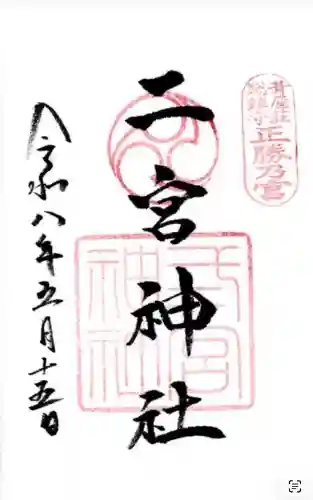 正勝乃宮
二宮神社
二宮
神社
令和八年五月十五日